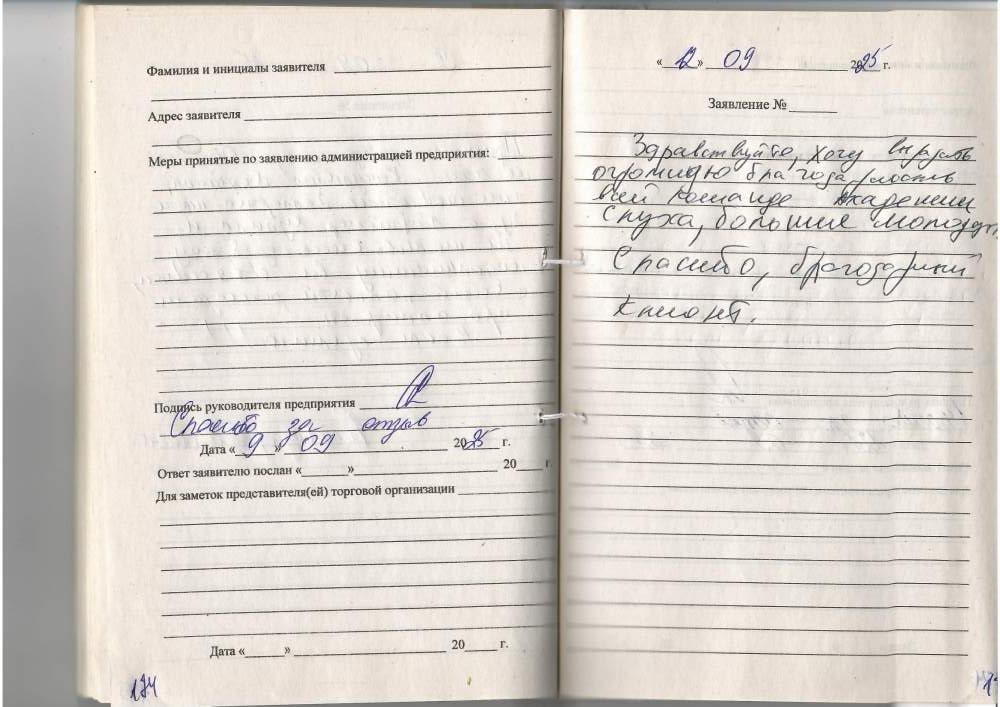 Фамилия и инициалы заявителя
Адрес заявителя
Меры принятые по заявлению администрацией предприятия:
Подпись руководителя предприятия
Спасибо за отзыв
Дата «9» 09 2025 г.
Ответ заявителю послан «» 20 г.
Для заметок представителя(ей) торговой организации
Дата «» 20 г.
174
«12» 09 2025 г.
Заявление №
Здравствуйте, хочу выразить
огромную благодарность
всей команде Академии
Слуха, большие молодцы
Спасибо, благодарный
клиент.